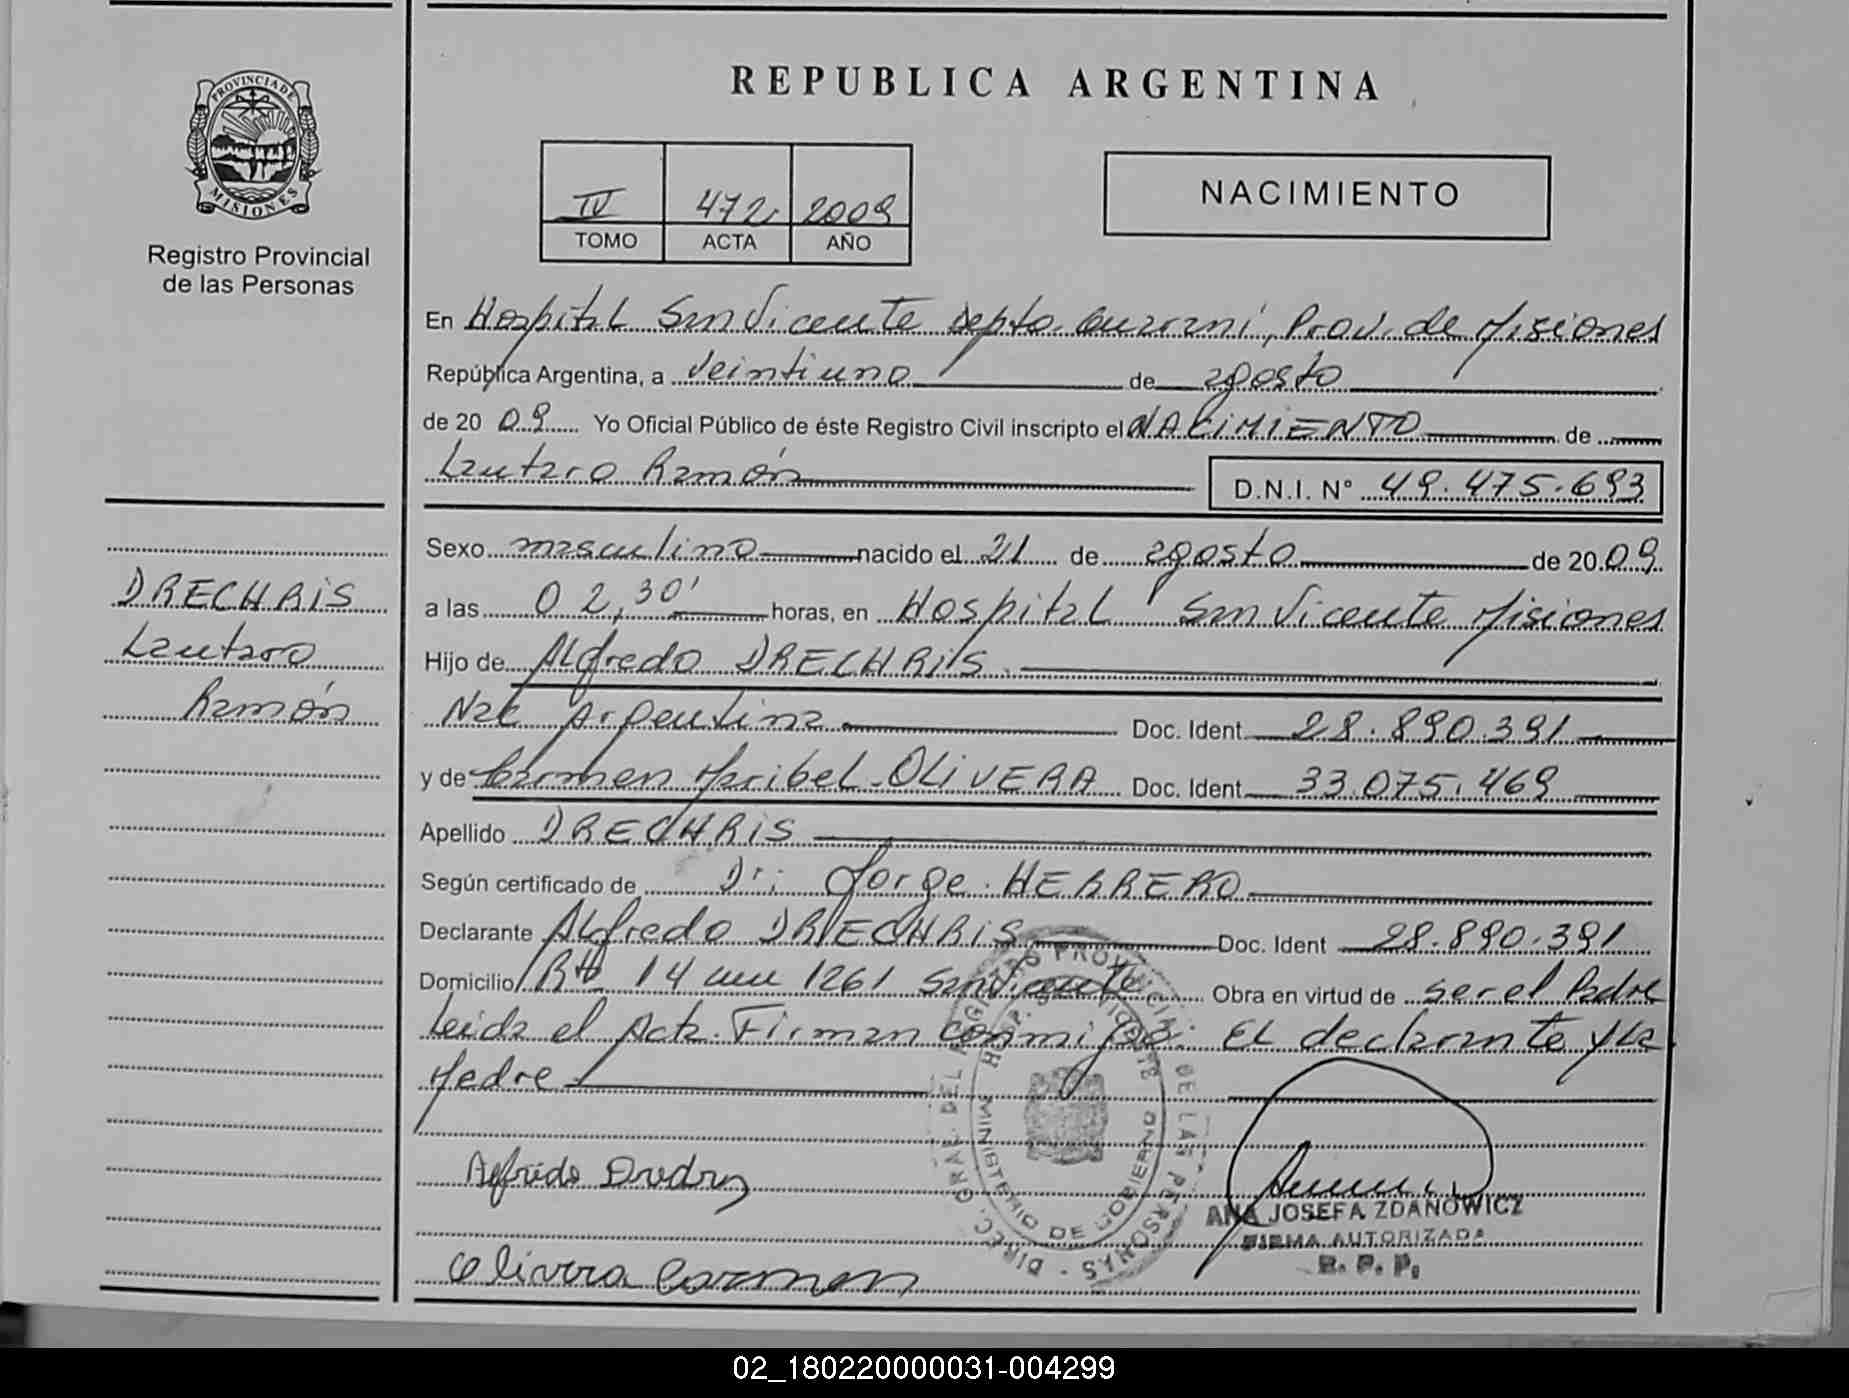 PROVINCIA DE
MISIONES
Registro Provincial
de las Personas
REPUBLICA ARGENTINA
IV 472 2009
TOMO ACTA AÑO
NACIMIENTO
En Hospital San Vicente Depto. Guaraní, Prov. de Misiones
República Argentina, a veintiuno de agosto
de 20 09 Yo Oficial Público de éste Registro Civil inscripto el NACIMIENTO de
Lautaro Ramón
D.N.I. Nº 49.475.693
Sexo masculino nacido el 21 de agosto de 20 09
a las 02,30' horas, en Hospital San Vicente Misiones
Hijo de Alfredo DRECHRIS
Nac Argentina Doc. Ident 28.890.391
y de Carmen Maribel OLIVERA Doc. Ident 33.075.469
Apellido DRECHRIS
Según certificado de Dr: Jorge HERRERO
Declarante Alfredo DRECHRIS Doc. Ident 28.890.391
Domicilio Rta 14 km 1261 San Vicente Obra en virtud de ser el Padre
Leida el Acta. Firman conmigo: El declarante y la
Madre
DRECHRIS
Lautaro
Ramón
DIREC. GRAL. DEL REGISTRO PROVINCIAL DE LAS PERSONAS
HOSP. S. VICENTE
MINISTERIO DE GOBIERNO
Alfredo
Olivera Carmen
ANA JOSEFA ZDANOWICZ
FIRMA AUTORIZADA
R. P. P.
02_180220000031-004299